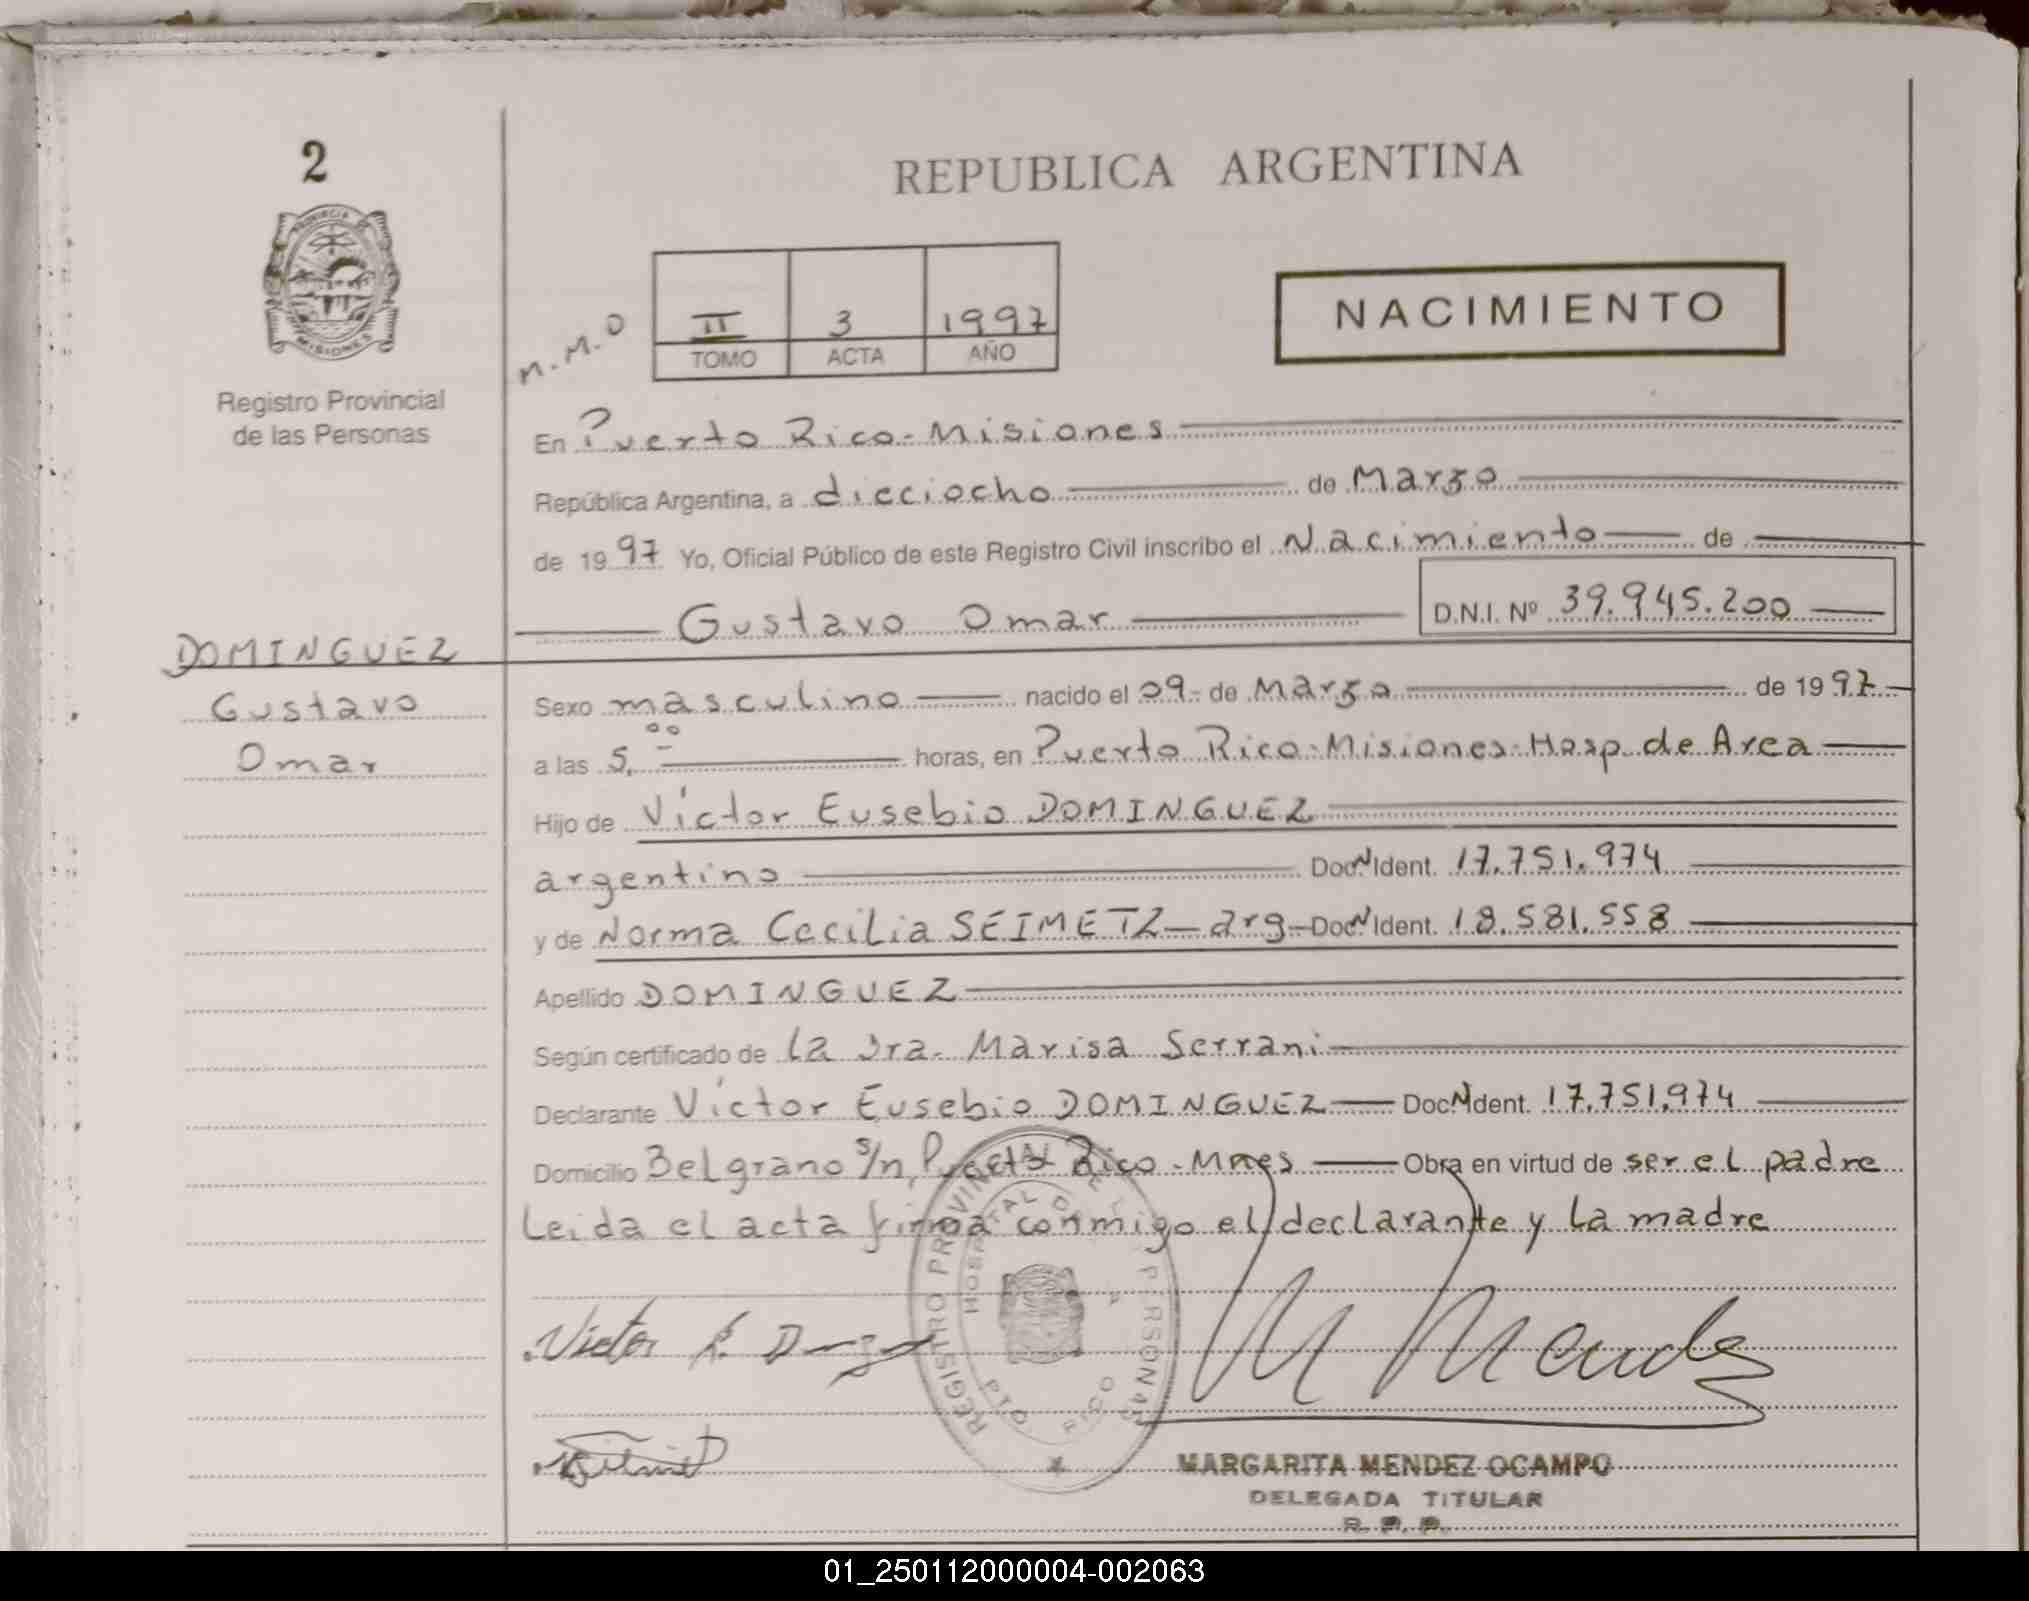 2
REPUBLICA ARGENTINA
PROVINCIA DE
MISIONES
Registro Provincial
de las Personas
M.M.O
II 3 1997
TOMO ACTA AÑO
NACIMIENTO
En Puerto Rico - Misiones
República Argentina, a dieciocho de Marzo
de 1997 Yo, Oficial Público de este Registro Civil inscribo el Nacimiento de
Gustavo Omar D.N.I. Nº 39.945.200
DOMINGUEZ
Gustavo
Omar
Sexo masculino nacido el 09 - de Marzo de 1997
a las 5,00 horas, en Puerto Rico - Misiones - Hosp. de Area
Hijo de Víctor Eusebio DOMINGUEZ
argentino Doc. N Ident. 17.751.974
y de Norma Cecilia SEIMETZ - arg - Doc. N Ident. 18.581.558
Apellido DOMINGUEZ
Según certificado de la Dra. Marisa Serrani
Declarante Víctor Eusebio DOMINGUEZ Doc. N Ident. 17.751.974
Domicilio Belgrano s/n, Puerto Rico - Mnes Obra en virtud de ser el padre
Leida el acta firma conmigo el declarante y la madre
REGISTRO PROVINCIAL DE PERSONAS
HOSPITAL PTO RICO
Victor E.
M Mendez
MARGARITA MENDEZ OCAMPO
DELEGADA TITULAR
R. P. P.
01_250112000004-002063